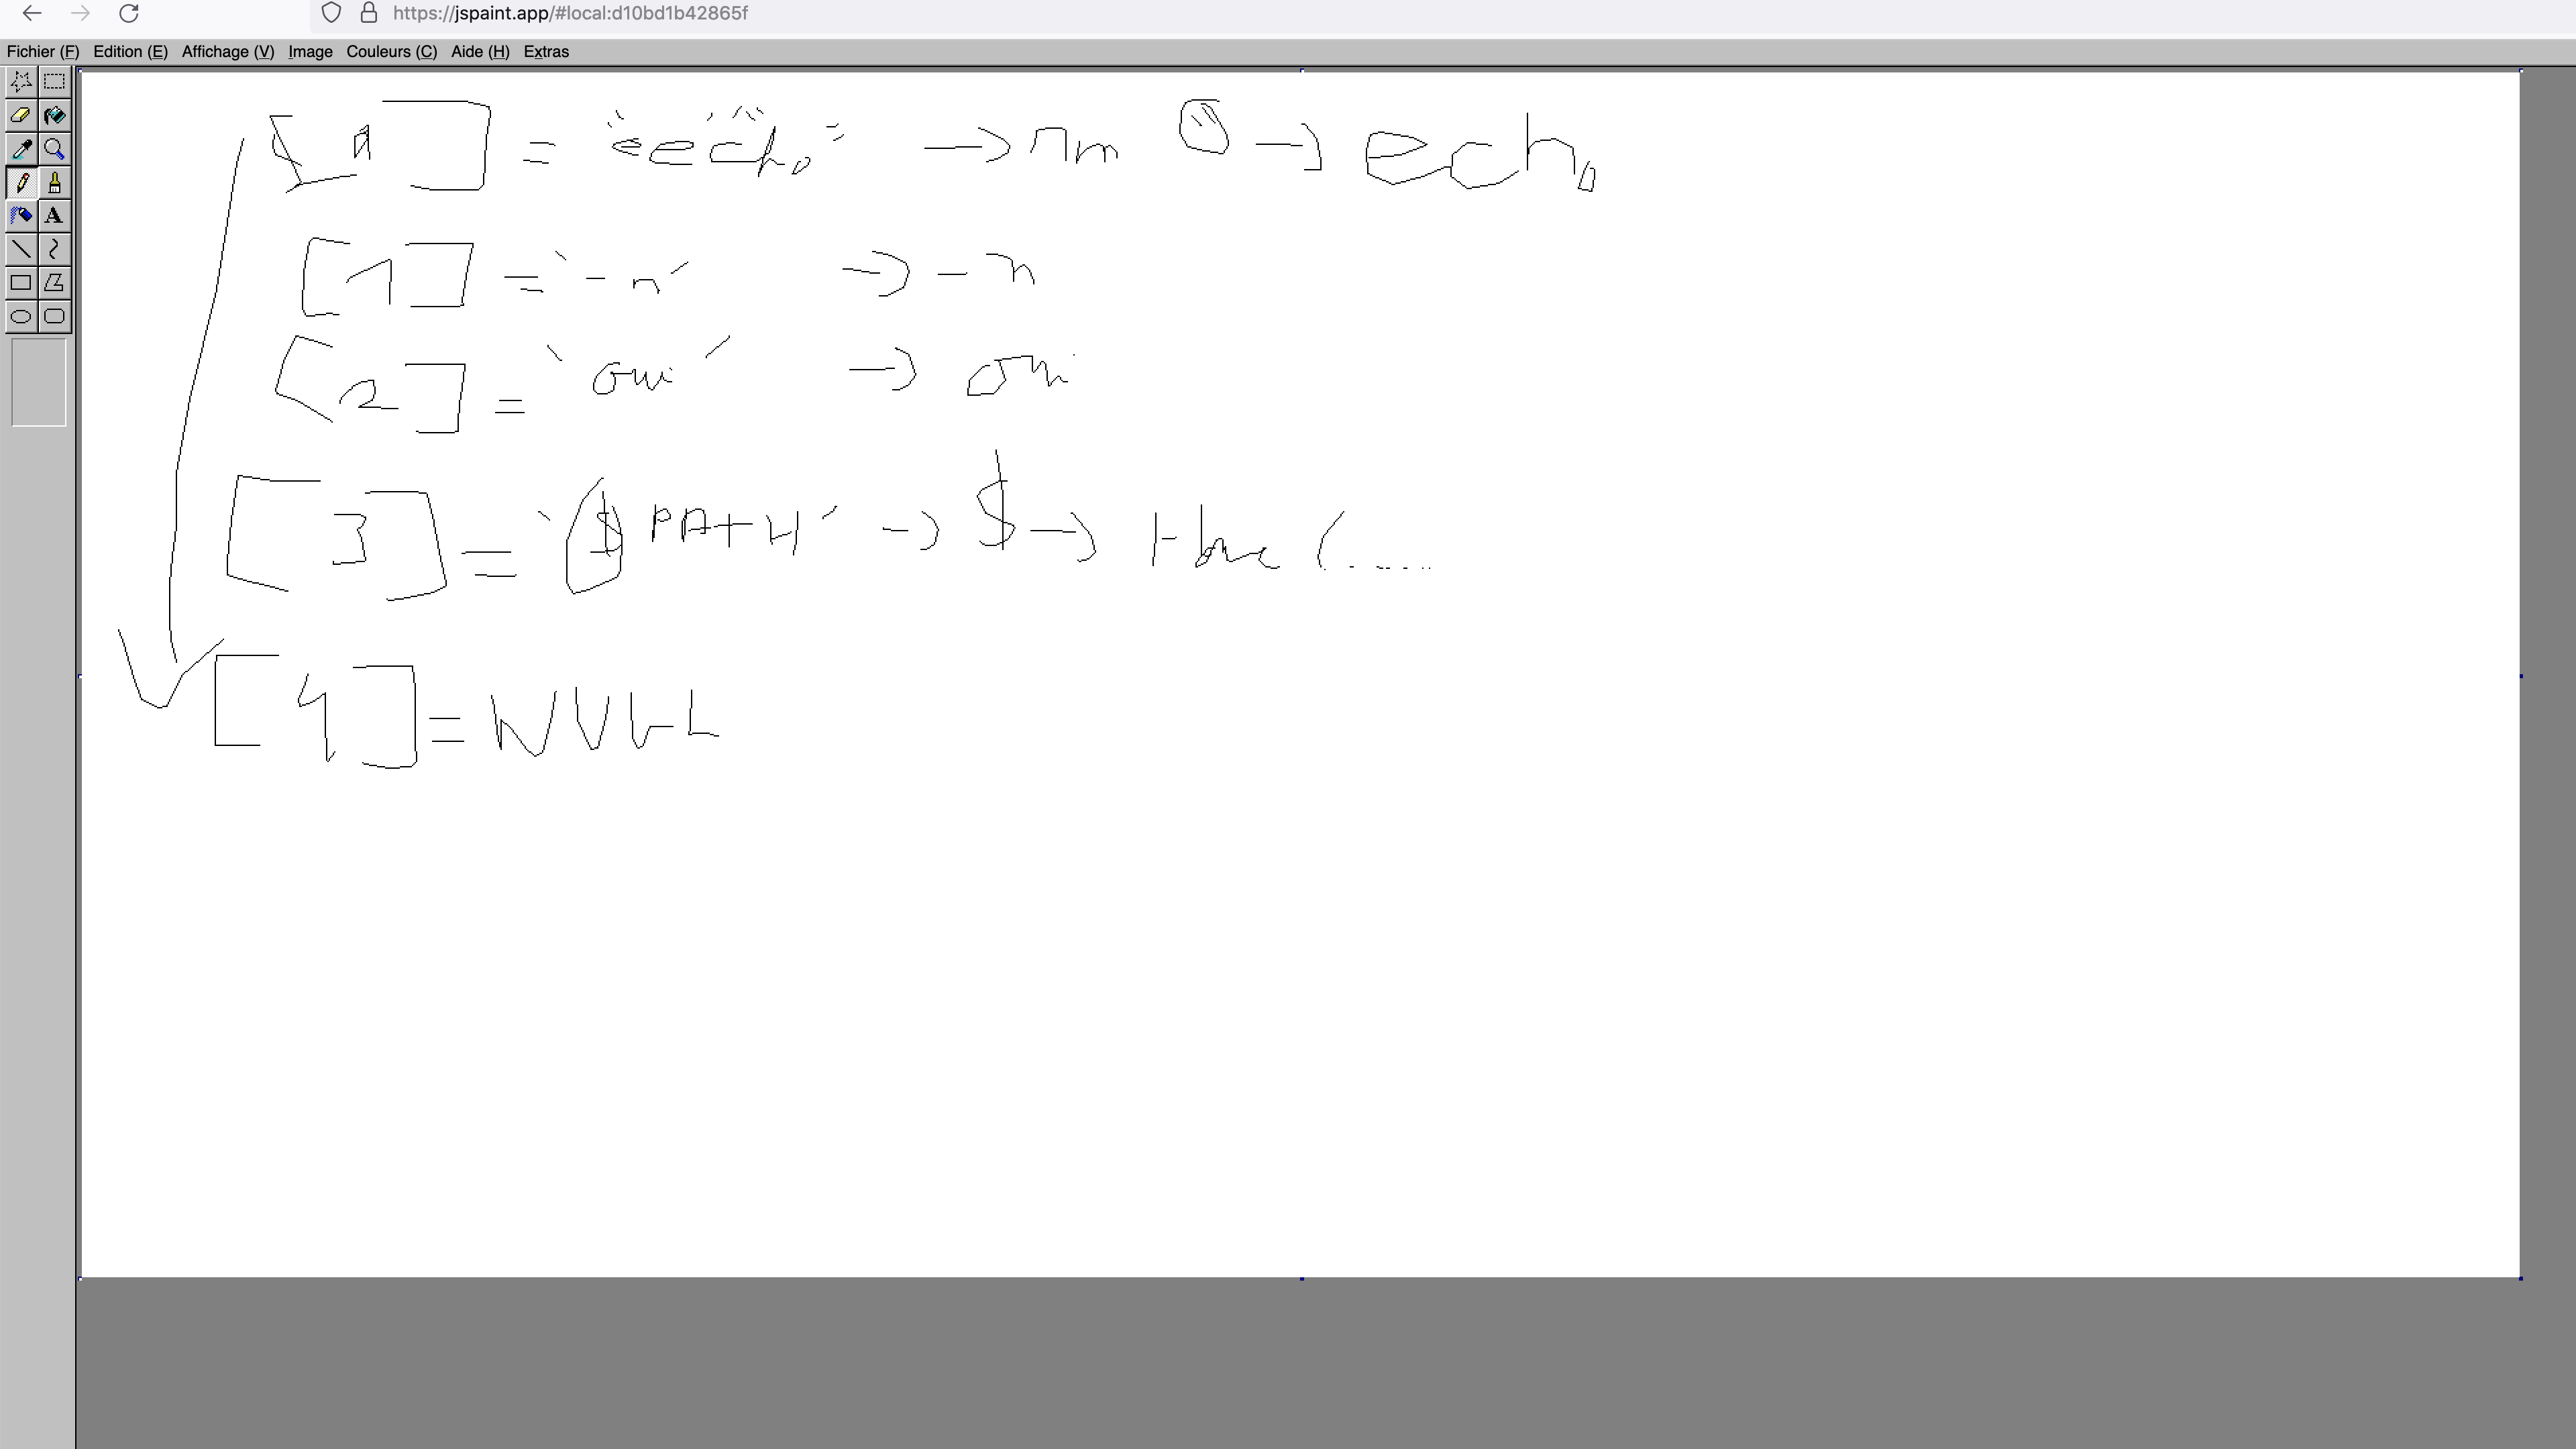 https://jspaint.app/#local:d10bd1b42865f
Fichier (F) Edition (E) Affichage (V) Image Couleurs (C) Aide (H) Extras
] = " ech o " → rm → echo
[1] = ` - n ´ → - n
[2] = ` oui ´ → oui
[3] = ` $ PATH ´ → $ → Home (.....
[4] = NULL